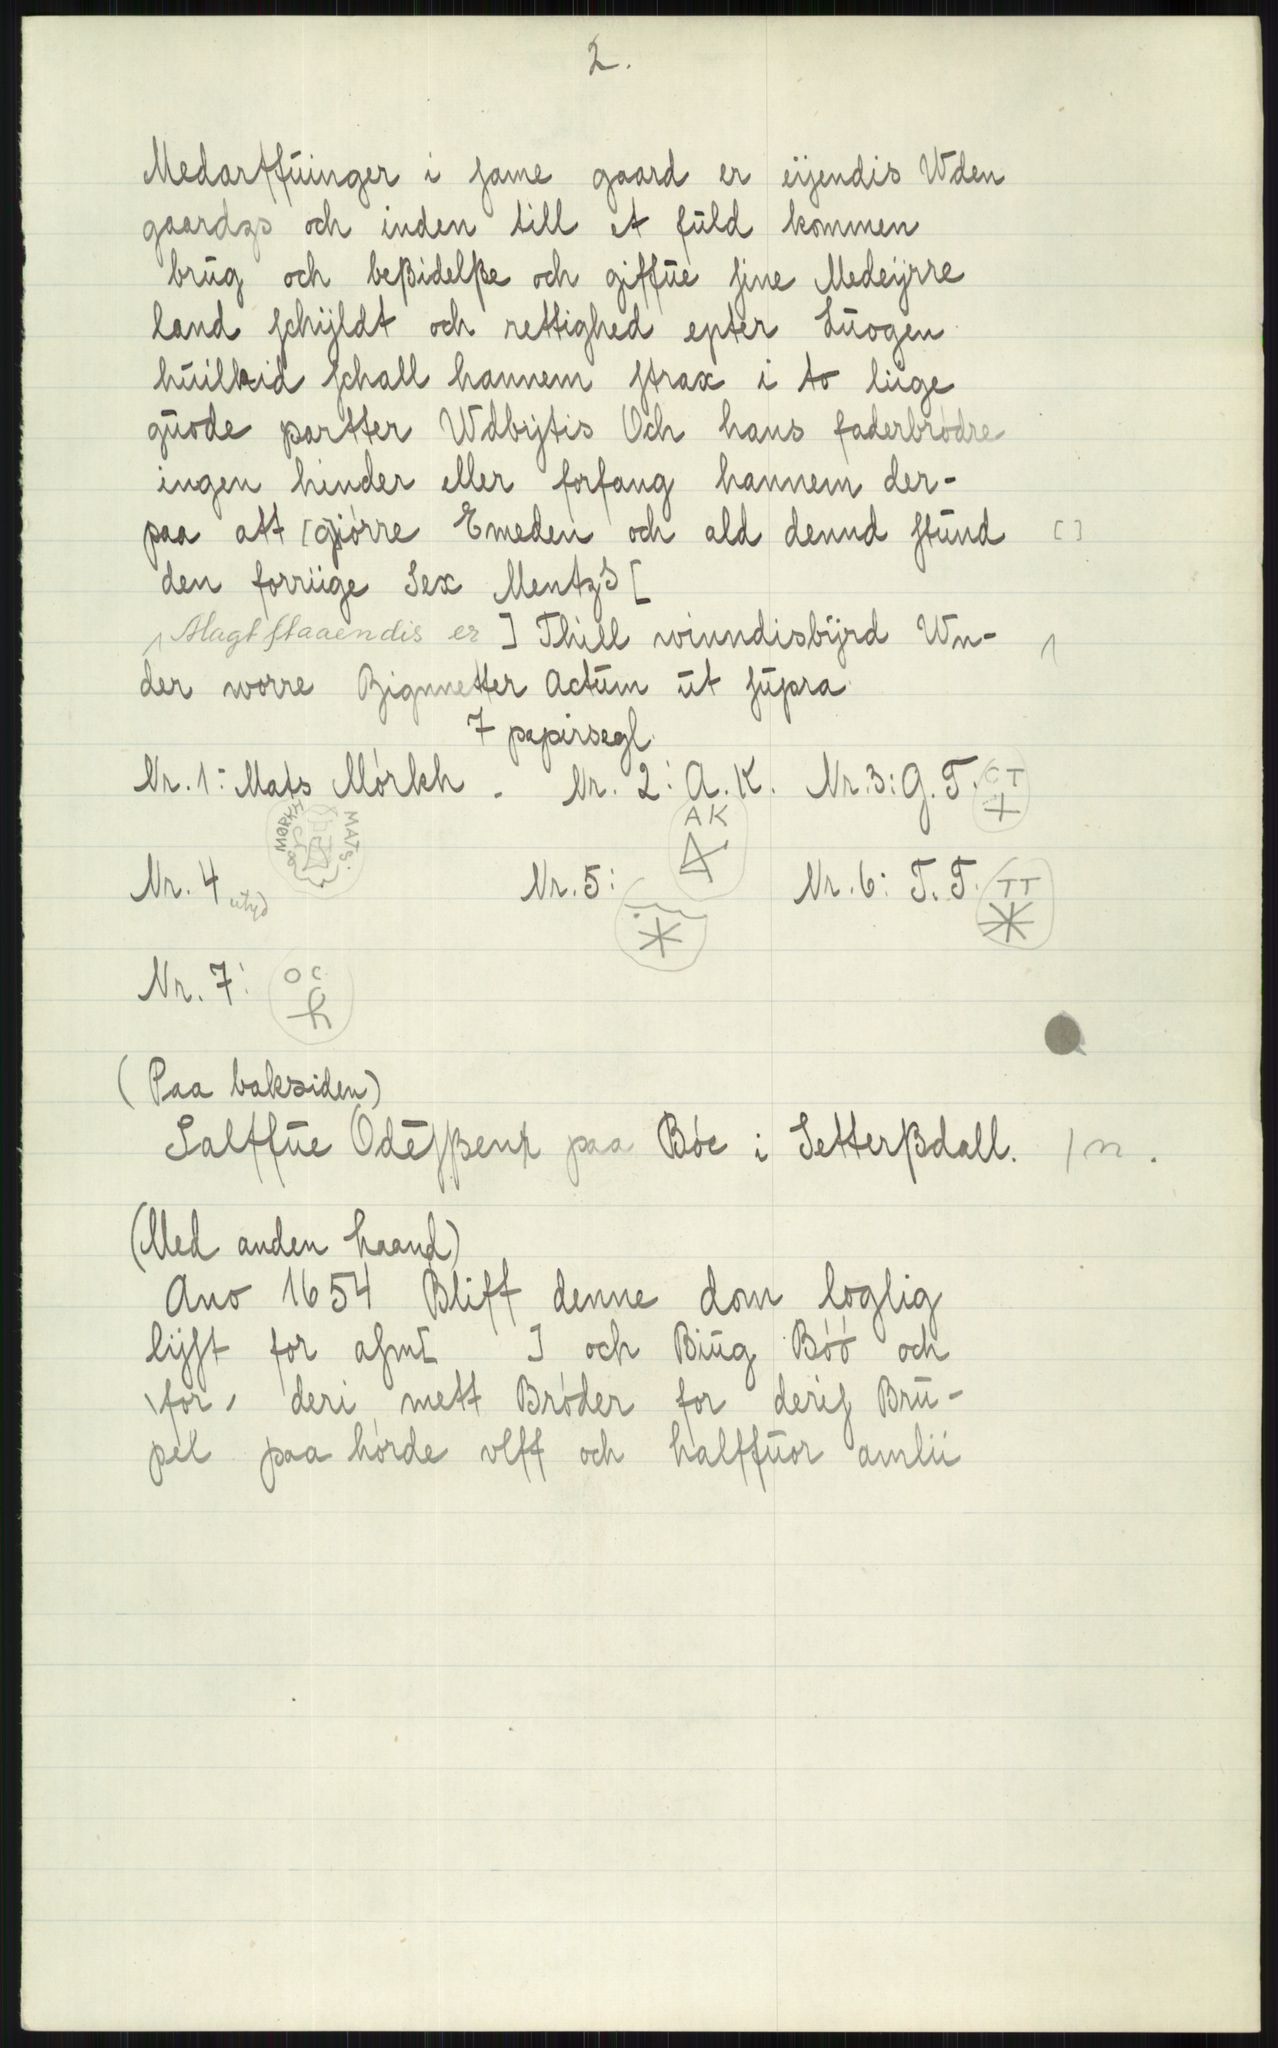 2.
Medarffuinger i same gaard er eijendis Wden
gaardzs och inden till et fuld kommen
brug och beßidelße och giffue sine Medeijrre
land schijldt och rettighed epter Luogen
huilkid schall hannem strax i to liige
guode partter Wdbijtis Och hans faderbrødre
ingen hinder eller forfang hannem der-
paa att [giørre Emeden och ald dennd stund []
den forriige Sex Mentzs [
Magt staaendis er] Thill winndisbijrd Wn-
der worre Zignnetter Actum ut supra
7 papirsegl
Nr. 1: Mats Mórkh. Nr. 2: A. K. Nr. 3: G. T. CT
MATS MØRKH AK
Nr. 4 utyd Nr. 5: Nr. 6: T. T. TT
Nr. 7: OC
(Paa baksiden)
Salffue Odeßenz paa Bóe i Setterßdall. /n.
(Med anden haand)
Ano 1654 Bliff denne dom loglig
lijst for asm[ ] och Biug Bóó och
for deri mett Bróder for deris Bru-
pel paa hórde vlff och halffuor amlii